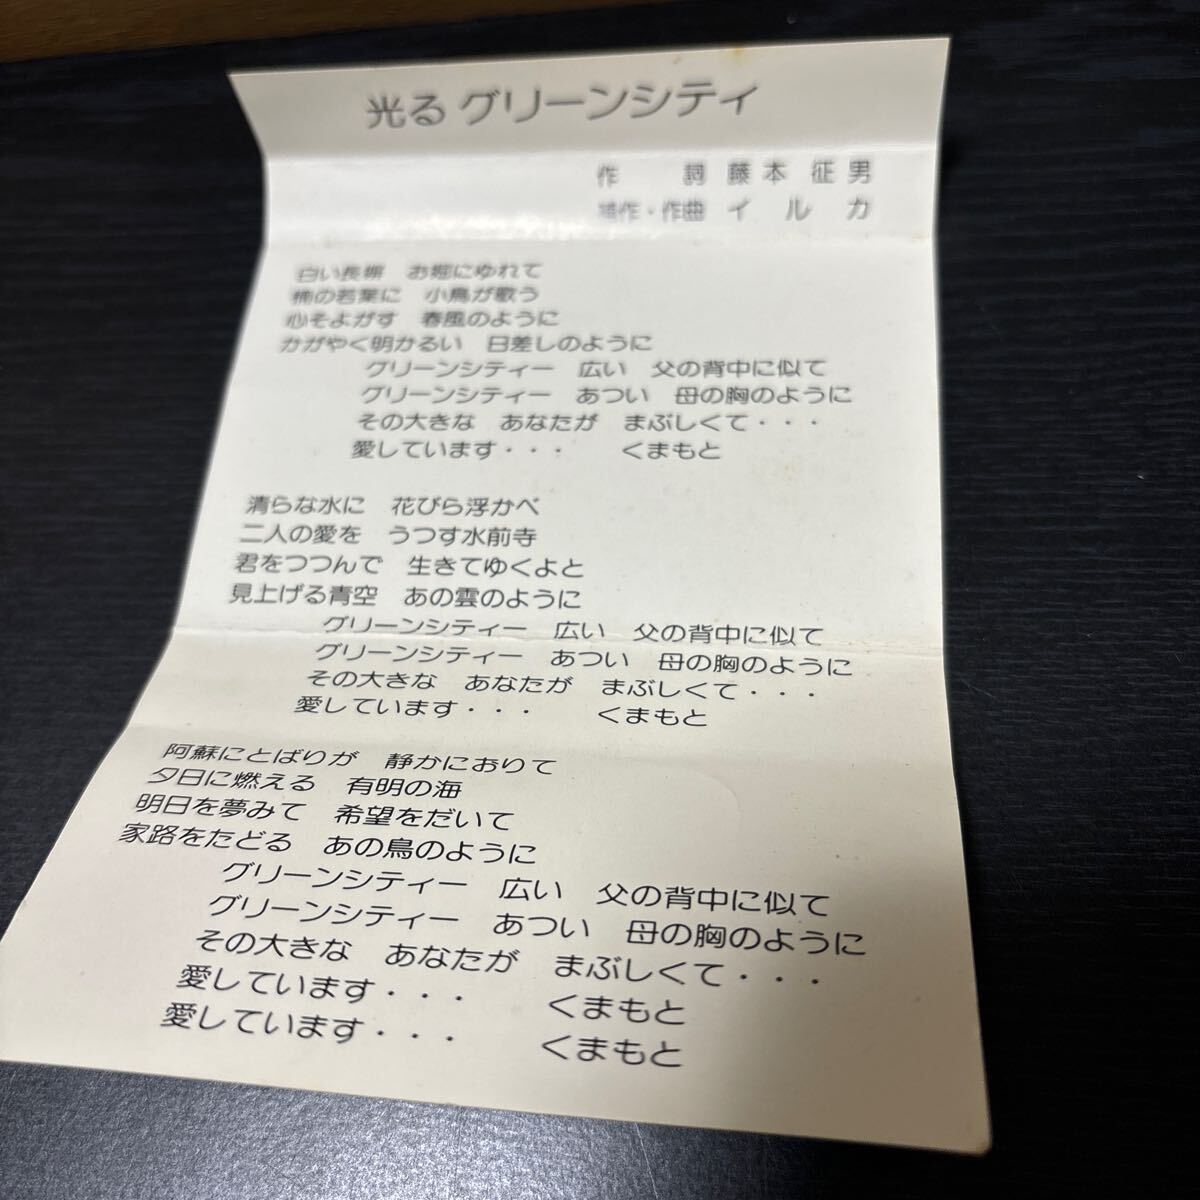 光る グリーンシティ
作 詞 藤本 征男
補作・作曲 イルカ
白い長塀 お堀にゆれて
楠の若葉に 小鳥が歌う
心そよがす 春風のように
かがやく明かるい 日差しのように
グリーンシティー 広い 父の背中に似て
グリーンシティー あつい 母の胸のように
その大きな あなたが まぶしくて・・・
愛しています・・・ くまもと
清らな水に 花びら浮かべ
二人の愛を うつす水前寺
君をつつんで 生きてゆくよと
見上げる青空 あの雲のように
グリーンシティー 広い 父の背中に似て
グリーンシティー あつい 母の胸のように
その大きな あなたが まぶしくて・・・
愛しています・・・ くまもと
阿蘇にとばりが 静かにおりて
夕日に燃える 有明の海
明日を夢みて 希望をだいて
家路をたどる あの鳥のように
グリーンシティー 広い 父の背中に似て
グリーンシティー あつい 母の胸のように
その大きな あなたが まぶしくて・・・
愛しています・・・ くまもと
愛しています・・・ くまもと